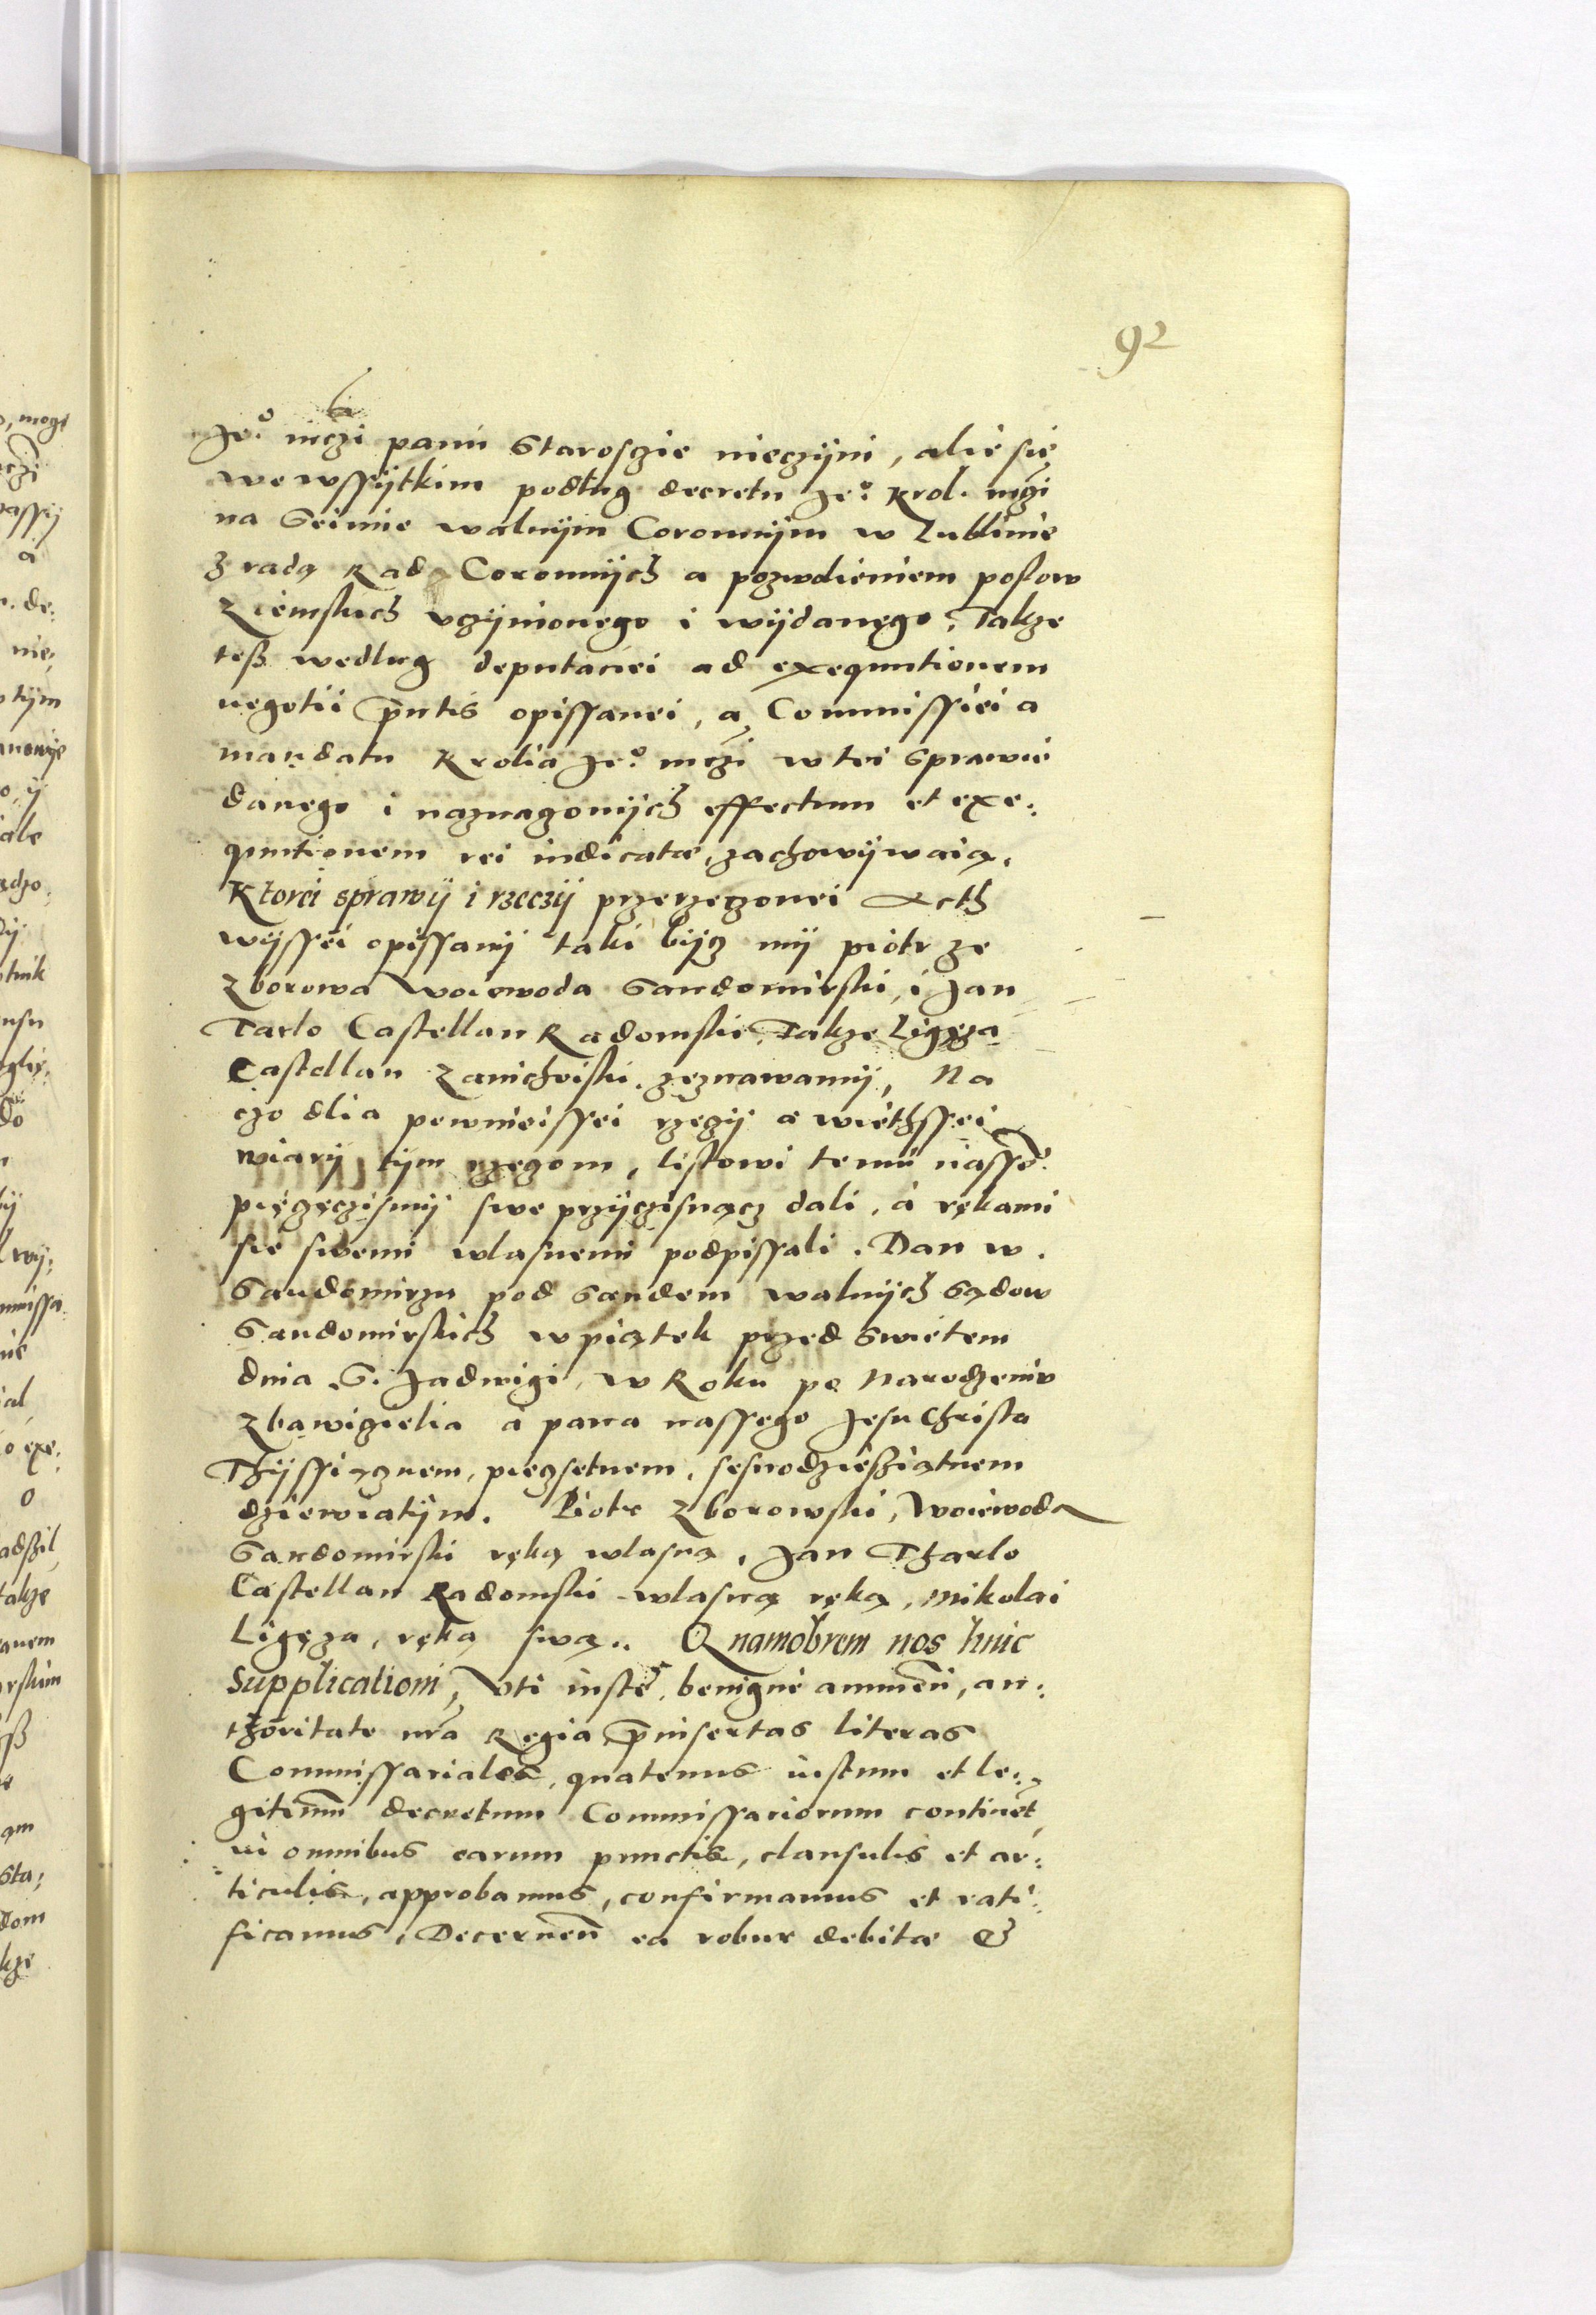 92
Je.º mczi panu Starosczie nieczÿni, alie się
we wssÿtkim podlug decretu Je.º Krol. mczi
na Seimie walnÿm Coronnÿm w Lublinie
z radą Rad Coronnÿch a pozwolieniem poslow
Ziemskich vczÿnionego i wÿdanego, Takze
tesz wedlug deputaciei ad exequutionem
negotii pn̄tis opissanei, a Commissiei a
mandatu Krolia Je.º mczi w tei sprawie
danego i naznaczonÿch effectum et exe:
quutionem rei iudicatæ, zachowÿwaią.
Ktorei sprawÿ i rzeczÿ przerzeczonei Acth
wÿssei opissanÿ taki bÿcz mÿ piotr ze
Zborowa Woiewoda Sandomirski, i Jan
Tarlo Castellan Radomski, Takze Ligęza
Castellan Zawichoiski zeznawamÿ, Na
czo dlia pewnieissei rzeczÿ a wiethssei
wiarÿ tÿm rzeczom, listowi temu nasse.º
pięczęczismÿ swe przÿczisnącz dali, a rękami
sie swemi wlasnemi podpissali. Dan w.
Sandomirzu pod sandem walnÿch sądow
Sandomirskich w piątek przed swietem
dnia S. Jadwigi, w Roku po Narodzeniu
Zbawiczielia a pana nassego Jesu Christa
Thÿssiącznem, pieczsetnem, sesnodziesziątnem
dziewiatÿm. Piotr Zborowski, Woiewoda
Sandomirski ręką wlasną, Jan Tharlo
Castellan Radomski wlasną ręką, Mikolai
Ligęza, ręką swą.. Quamobrem nos huic
Supplicationi, vti iustæ, benigne annuen̄, au:
thoritate nr̄a Regia p̄insertas literas
Commissariales, quatenus iustum et le:
gitimū decretum Commissariorum continēt,
in omnibus earum punctis, clausulis et ar:
ticulis, approbamus, confirmamus et rati:
ficamus, Decernen̄ ea robur debitæ &